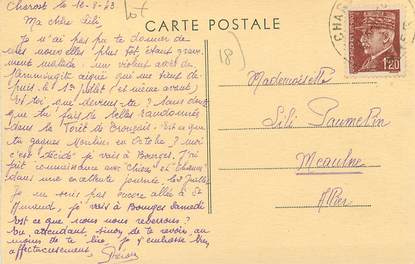 Charost le 10-8-43
CARTE POSTALE
Ma chère Lili
Je n'ai pas pu te donner de
mes nouvelles plus tôt, étant grave-
ment malade : un violent accès de
qui me tient de-
puis le 1er Juillet et même avant,
Et toi, que deviens-tu ? Sans doute
que tu fais de belles randonnées
dans la forêt de Tronçais. Est-ce que
tu gagnes Moulins en Octobre ? moi
c'est décidé je vais à Bourges. J'ai
fait connaissance avec
dans une excellente journée.
Je ne suis pas encore allée à St
Amand, je vais à Bourges Samedi
est ce que nous nous reverrons ?
En attendant, sinon de te revoir, au
moins de te lire, je t'embrasse bien
affectueusement,
18
Mademoiselle
Lili Paumelin
Meaulne
Allier
1F20